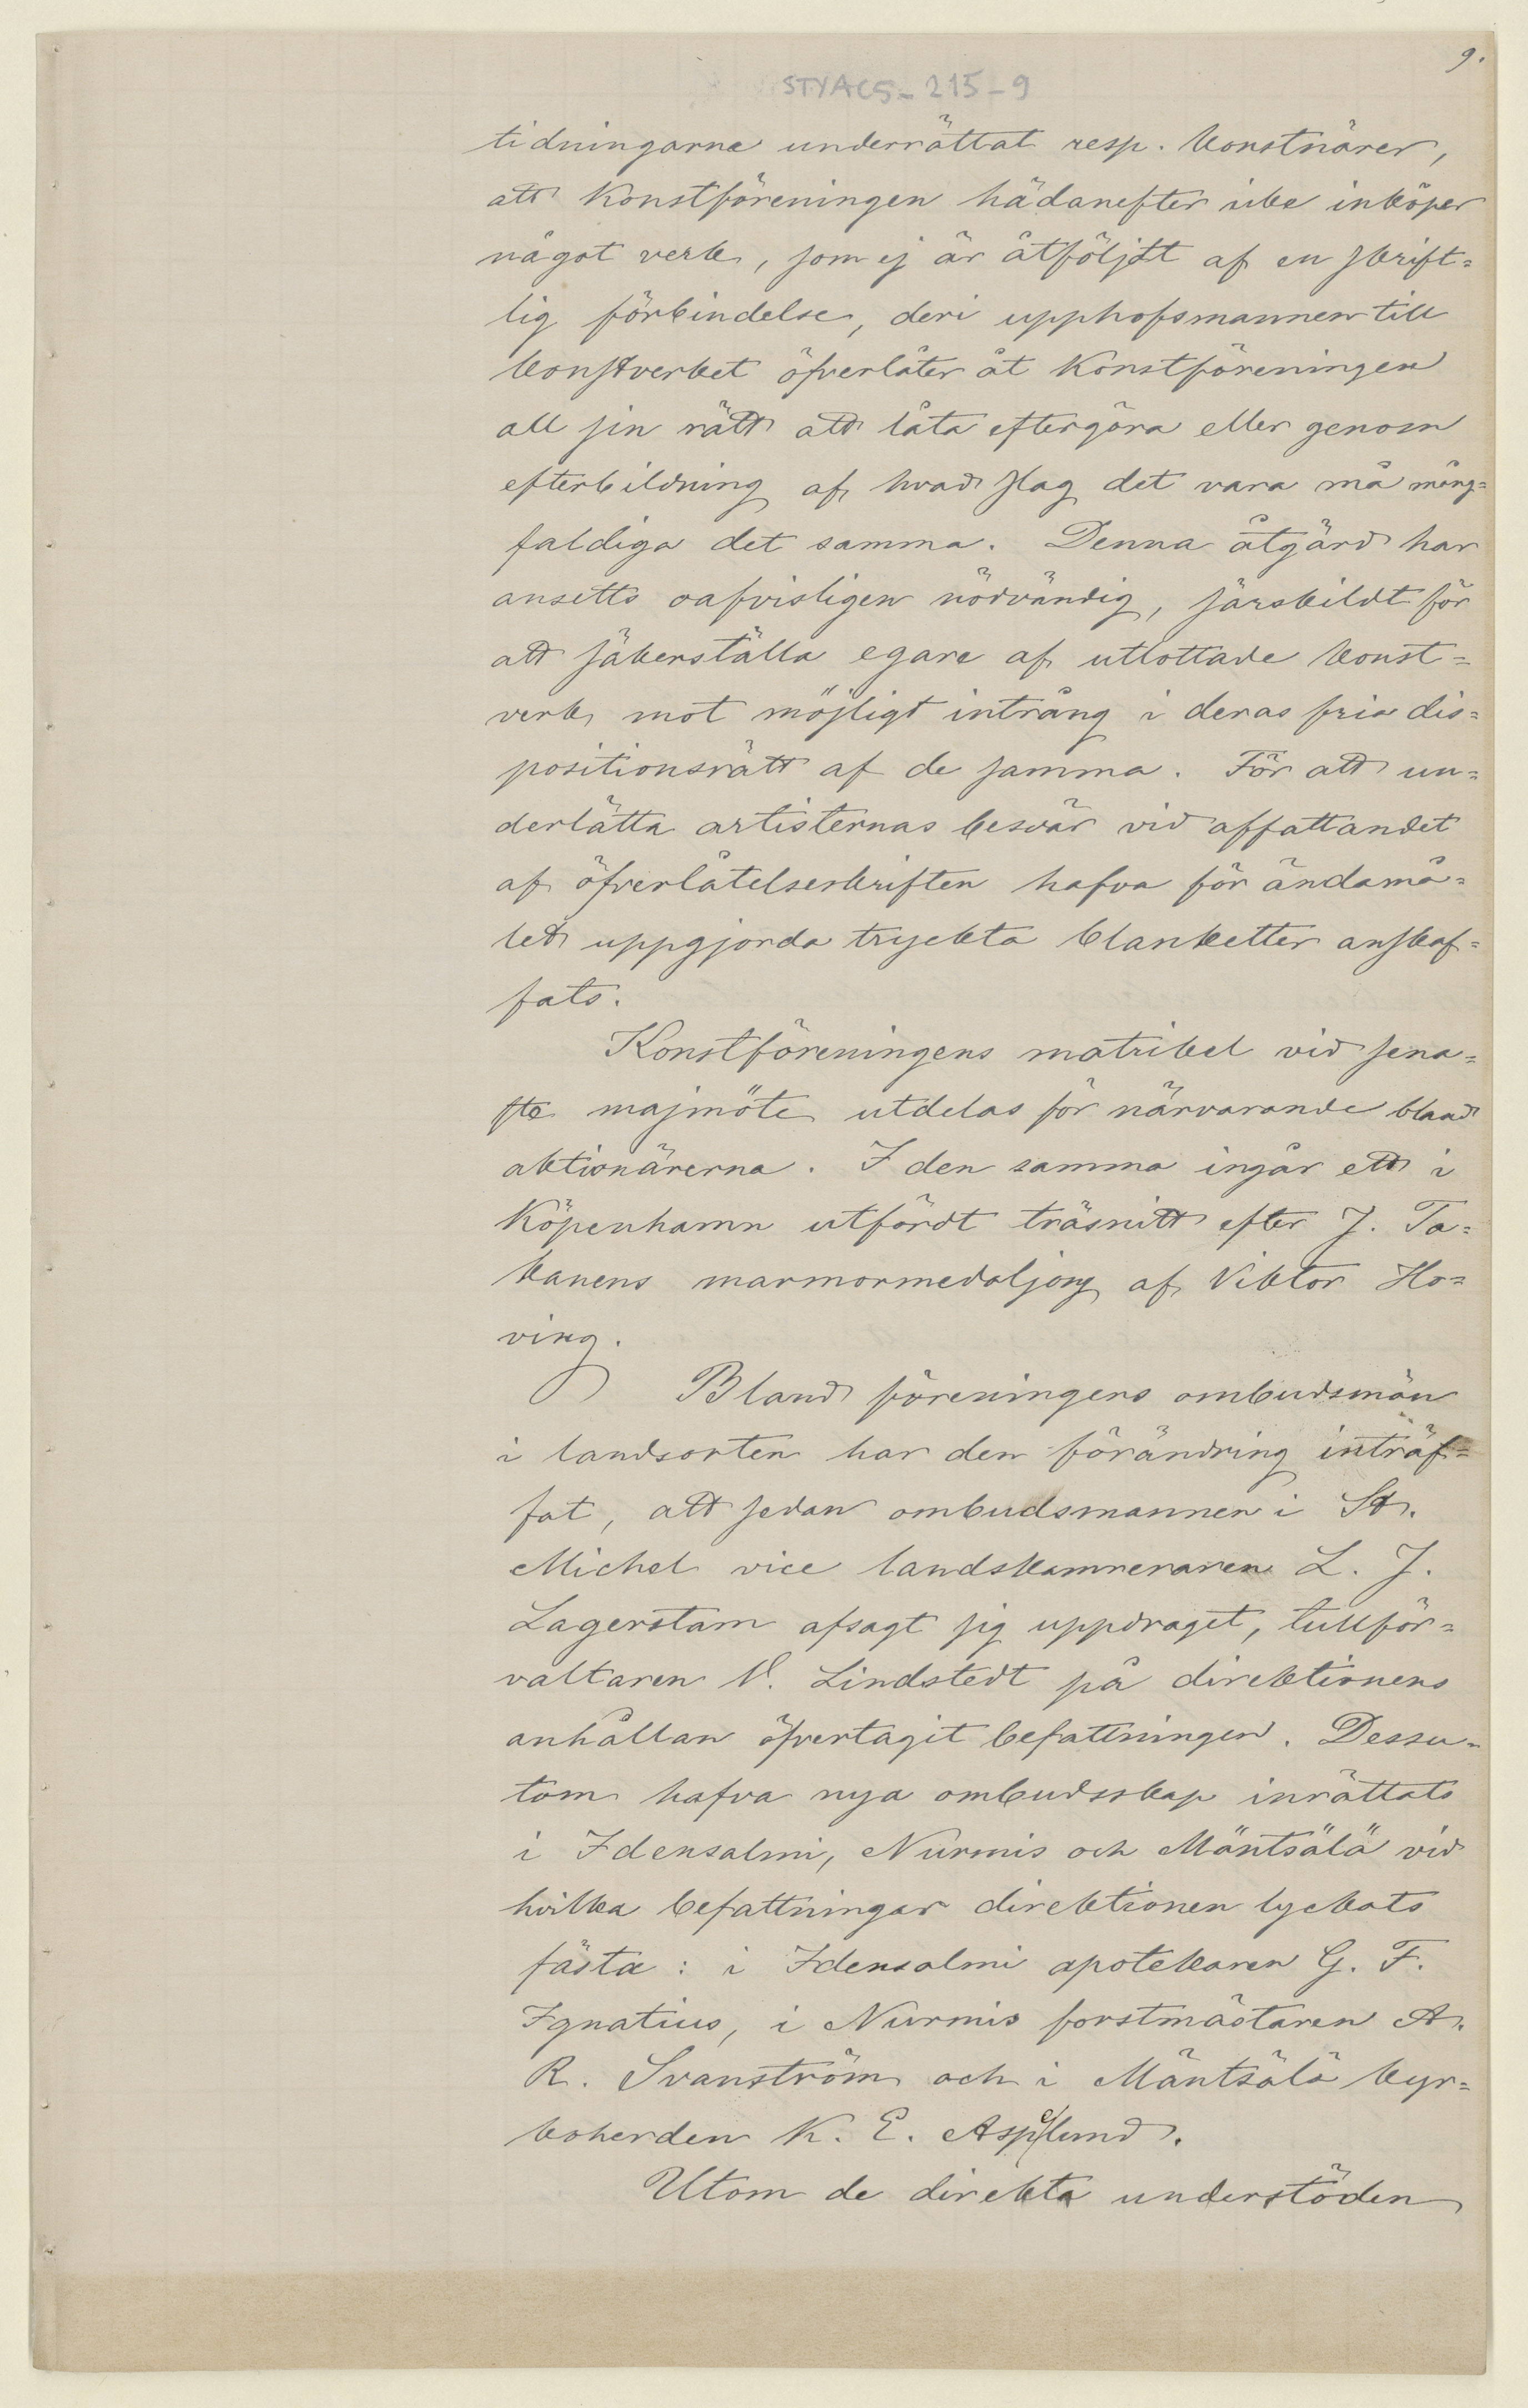 9.
STYAC5-215-9
tidningarne underrättat resp. konstnärer,
att Konstföreningen hädanefter icke inköper
något verk, som ej är åtföljdt af en skrift-
lig förbindelse, deri upphofsmannen till
konstverket öfverlåter åt Konstföreningen
all sin rätt att låta eftergöra eller genom
efterbildning af hvad slag det vara må mång-
faldiga det samma. Denna åtgärd har
ansetts oafvisligen nödvändig, särskildt för
att säkerställa egare af utlottade konst-
verk mot möjligt intrång i deras fria dis-
positionsrätt af de samma. För att un-
derlätta artisternas besvär vid affattandet
af öfverlåtelseskriften hafva för ändamå-
let uppgjorda tryckta blanketter anskaf-
fats.
Konstföreningens matrikel vid sena-
ste majmöte utdelas för närvarande bland
aktionärerna. I den samma ingår ett i
Köpenhamn utfördt träsnitt efter J. Ta-
kanens marmormedaljong af Viktor Ho-
ving.
Bland föreningens ombudsmän
i landsorten har den förändring inträf-
fat, att sedan ombudsmannen i St.
Michel vice landskamreraren L. J.
Lagerstam afsagt sig uppdraget, tullför-
valtaren V. Lindstedt på direktionens
anhållan öfvertagit befattningen. Dessu-
tom hafva nya ombudsskap inrättats
i Idensalmi, Nurmis och Mäntsälä vid
hvilka befattningar direktionen lyckats
fästa: i Idensalmi apotekaren G. F.
Ignatius, i Nurmis forstmästaren A.
R. Svanström och i Mäntsälä kyr-
koherden K. E. Aspelund.
Utom de direkta understöden